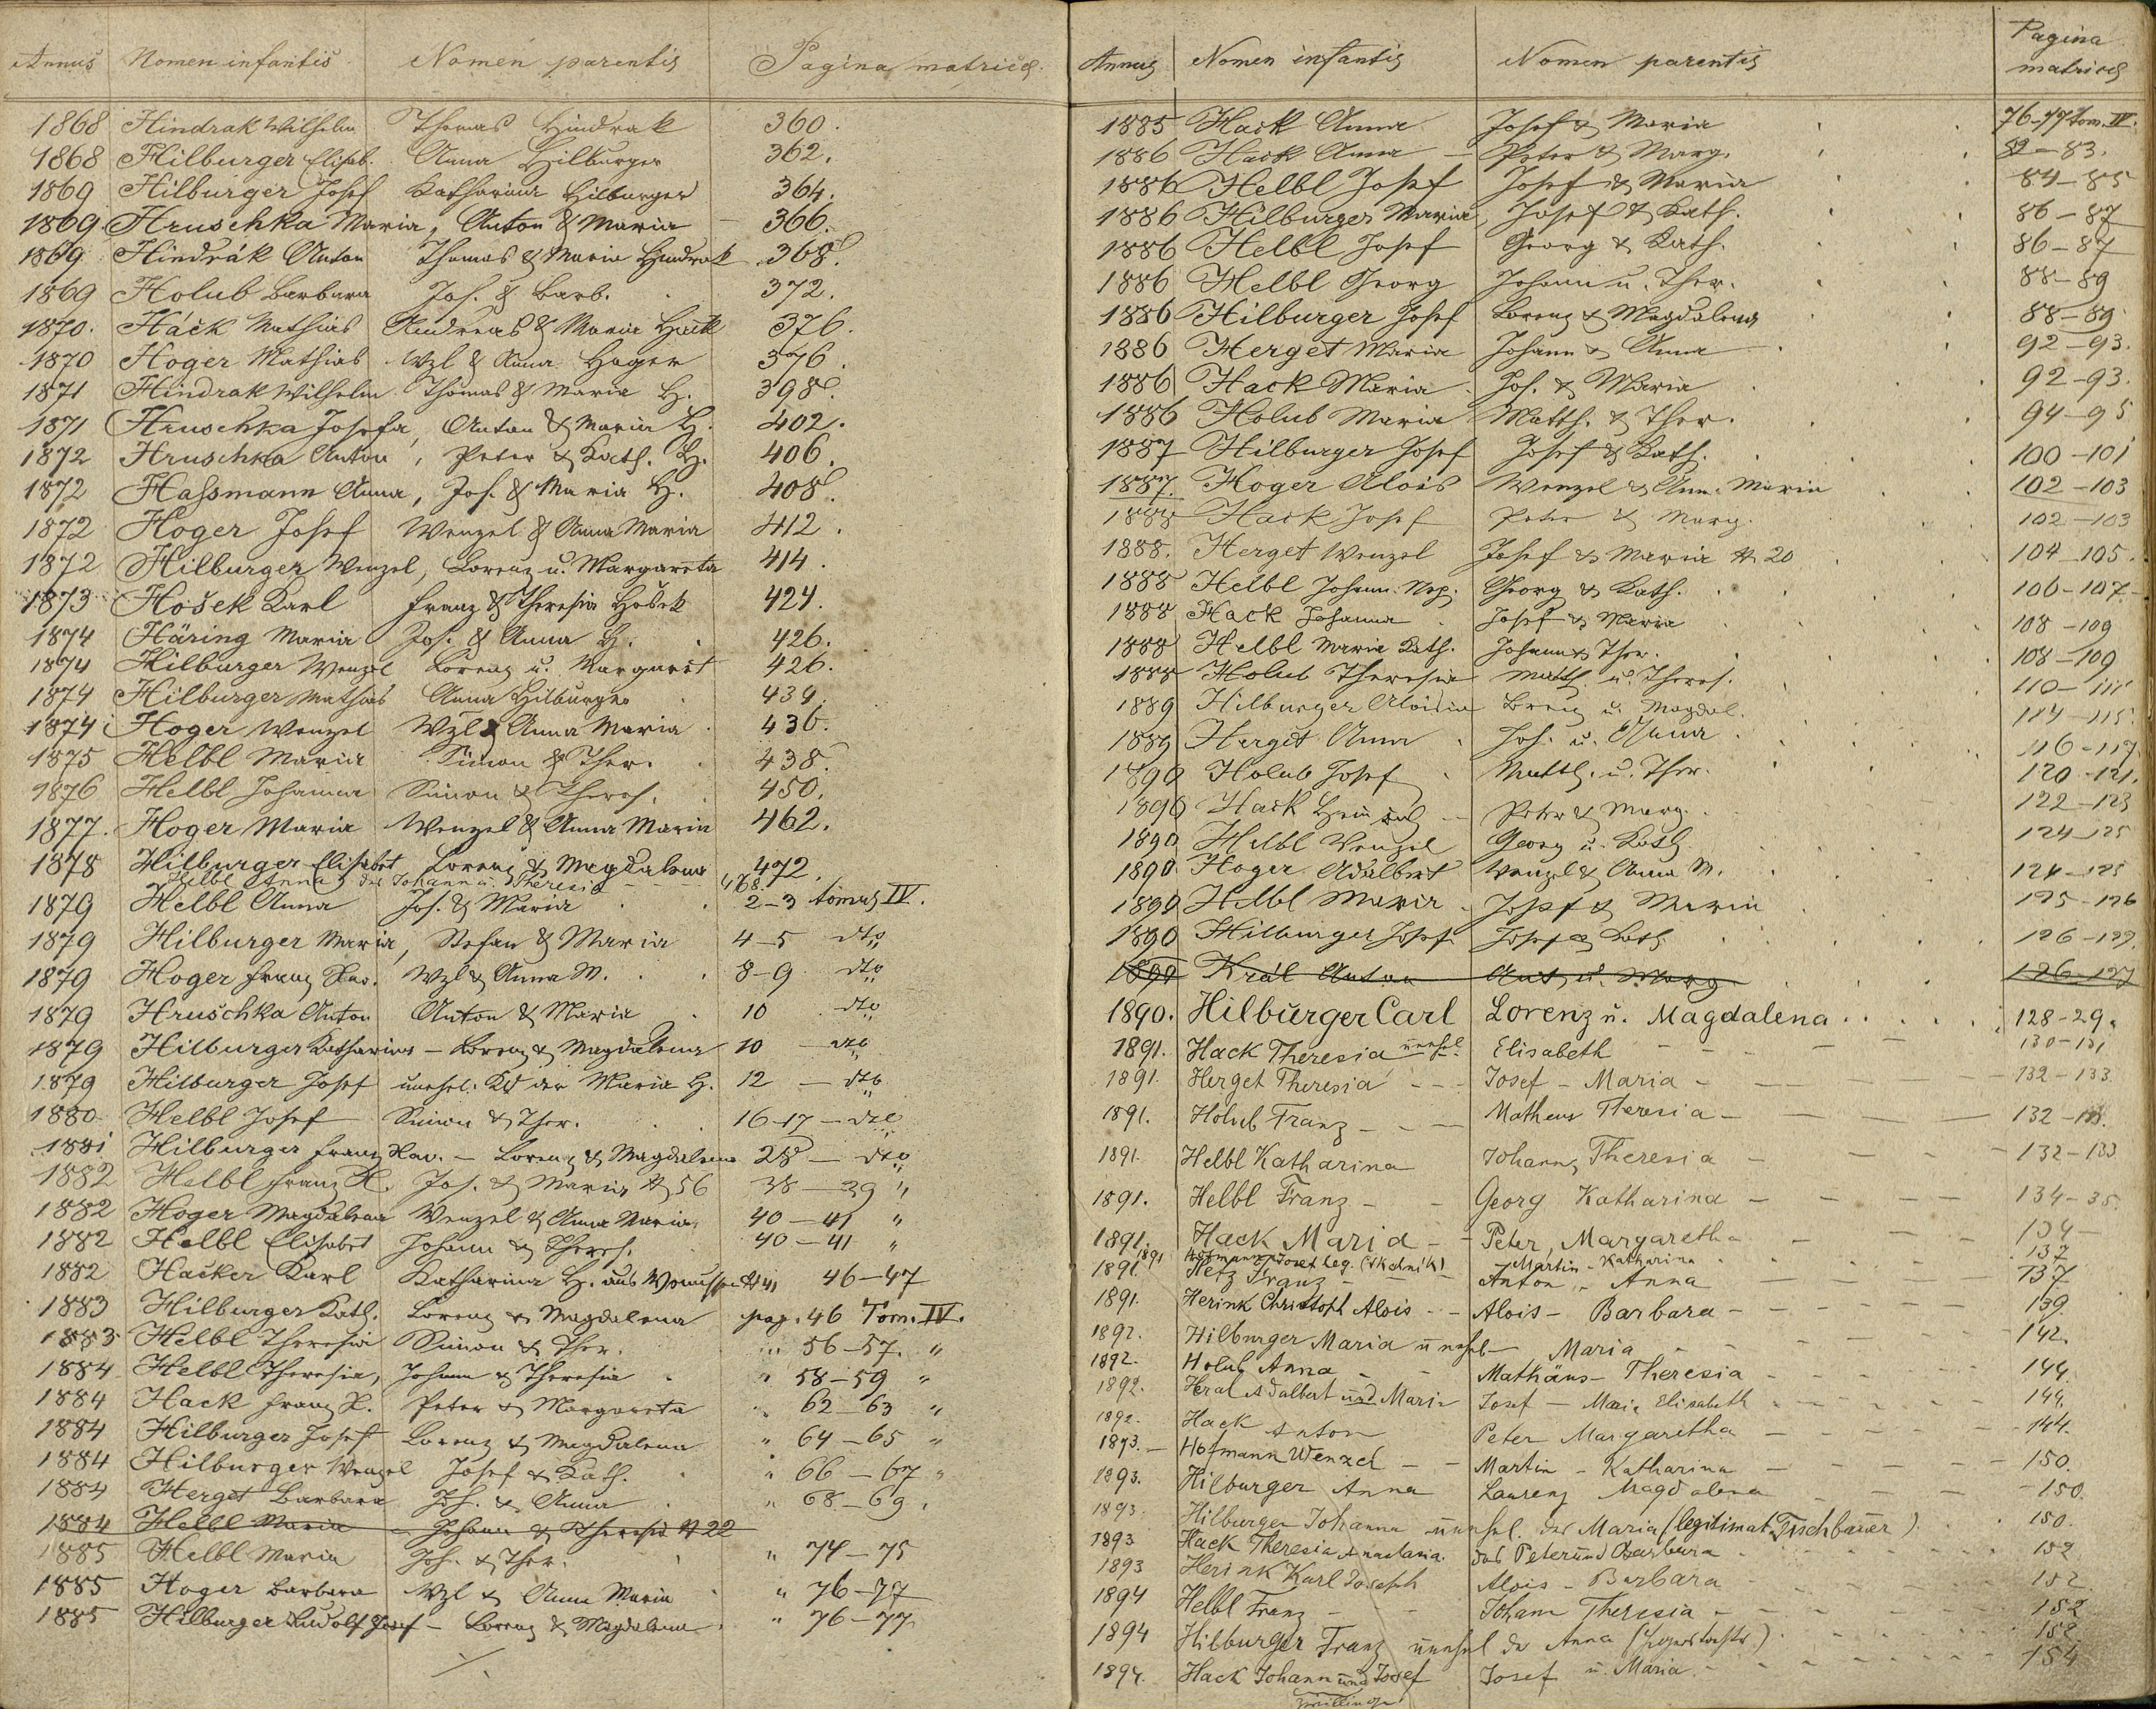 Annus Nomen infantis Nomen parentis Pagina matricis.
1868 Hindrak Wilhelm Thomas Hindrak 360.
1868 Hilburger Elisab. Anna Hilburger 362.
1869 Hilburger Josef Katharina Hilburger 364.
1869 Hruschka Maria, Anton & Maria 366.
1869 Hindrák Anton Thomas & Maria Hindrak 368.
1869 Holub Barbara Jos. & Barb. 372.
1870. Háck Mathias Andreas & Maria Hack 376.
1870 Hoger Mathias Wzl & Anna Hoger 376.
1871 Hindrak Wilhelm Thomas & Maria H. 398.
1871 Hruschka Josefa, Anton & Maria H. 402.
1872 Hruschka Anton, Peter & Kath. H. 406.
1872 Hassmann Anna, Jos. & Maria H. 408.
1872 Hoger Josef Wenzel & Anna Maria 412.
1872 Hilburger Wenzel, Lorenz u. Margareta 414.
1873 Hošek Karl Franz & Theresia Hošek 424.
1874 Häring Maria Jos. & Anna H. 426.
1874 Hilburger Wenzel Lorenz u. Margaret 426.
1874 Hilburger Mathias Anna Hilburger 434.
1874 Hoger Wenzel Wzl & Anna Maria 436.
1875 Helbl Maria Simon & Ther. 438.
1876 Helbl Johanna Simon & Theres. 450.
1877. Hoger Maria Wenzel & Anna Maria 462.
1878 Hilburger Elisabet Lorenz & Magdalena 472.
Helbl Anna des Johann u. Theresia 468.
1879 Helbl Anna Jos. & Maria 2-3 tomus IV.
1879 Hilburger Maria, Stefan & Maria 4-5 dto
1879 Hoger Franz Xav. Wzl & Anna M. 8-9 dto
1879 Hruschka Anton Anton & Maria 10 dto
1879 Hilburger Katharina - Lorenz & Magdalena 10 - dto
1879 Hilburger Josef unehel. Kd der Maria H. 12 - dto
1880. Helbl Josef Simon & Ther. 16-17 - dto
1881 Hilburger Franz Xav. - Lorenz & Magdalena 28 - dto
1882 Helbl Franz X. Jos. & Maria # 56 38-39 "
1882 Hoger Magdalena Wenzel & Anna Maria 40-41 "
1882 Helbl Elisabet Johann & Theres. 40-41 "
1882 Hacker Karl Katharina H. aus 46-47
1883 Hilburger Kath. Lorenz & Magdalena pag. 46 Tom. IV.
1883 Helbl Theresia Simon & Ther. " 56-57. "
1884 Helbl Theresia, Johann & Theresia " 58-59 "
1884 Hack Franz X. Peter & Margareta " 62-63 "
1884 Hilburger Josef Lorenz & Magdalena " 64-65 "
1884 Hilburger Wenzel Josef & Kath. " 66-67 "
1884 Herget Barbara Joh. & Anna " 68-69.
1884 Helbl Maria Johann & Theresia # 22
1885 Helbl Maria Joh. & Ther. " 74-75
1885 Hoger Barbara Wzl & Anna Maria " 76-77
1885 Hilburger Rudolf Josef - Lorenz & Magdalena " 76-77
Annus Nomen infantis Nomen parentis Pagina matricis
1885 Hack Anna Josef & Maria 76-77 tom. IV.
1886 Hack Anna - Peter & Marg. 82-83.
1886 Helbl Josef Josef & Maria 84-85
1886 Hilburger Maria, Josef & Kath. 86-87
1886 Helbl Josef Georg & Kath. 86-87
1886 Helbl Georg Johann u. Ther. 88-89
1886 Hilburger Josef Lorenz & Magdalena 88-89
1886 Herget Maria Johann & Anna 92-93.
1886 Hack Maria Jos. & Maria 92-93.
1886 Holub Maria Matth. & Ther. 94-95
1887 Hilburger Josef Josef & Kath. 100-101
1887. Hoger Alois Wenzel & Anna Maria 102-103
1888 Hack Josef Peter & Marg. 102-103
1888. Herget Wenzel Josef & Maria # 20 104-105.
1888 Helbl Johann Nep. Georg & Kath. 106-107
1888 Hack Johanna Josef & Maria 108-109
1888 Helbl Maria Kath. Johann & Ther. 108-109
1888 Holub Theresia Matth. u. Theres. 110-111
1889 Hilburger Aloisia Lorenz u. Magdal. 114-115.
1889 Herget Anna Joh. u. Anna 116-117.
1890 Holub Josef Matth. u. Ther. 120-121.
1890 Hack Heinrich - Peter & Marg. 122-123
1890 Helbl Wenzel Georg u. Kath. 124-125
1890. Hoger Adalbert Wenzel & Anna M. 124-125
1890 Helbl Maria Josef & Maria 125-126
1890 Hilburger Josef Josef & Kath. 126-127.
1890 Král Anton Ant. u. Marg 126-127
1890. Hilburger Carl Lorenz u. Magdalena 128-29.
1891. Hack Theresia unehel. Elisabeth 130-131
1891. Herget Theresia Josef - Maria - 132-133.
1891. Holub Franz - - Matheus Theresia - 132-133.
1891. Helbl Katharina Johann, Theresia - 132-133
1891. Helbl Franz - - Georg Katharina - 134-35.
1891. Hack Maria - Peter, Margaretha 134-
1891 Hofmann Josef leg. Martin - Katharina 137
1891. Hetz Franz - Anton - Anna 137
1891. Herink Christoph Alois - - Alois - Barbara 139
1892. Hilburger Maria unehel - Maria 142.
1892. Holub Anna Mathäus - Theresia 144.
1892. Heral Adalbert und Maria Josef - Maria Elisabeth 144.
1892. Hack Anton Peter Margaretha 144.
1893. - Hofmann Wenzel - - Martin - Katharina - 150.
1893. Hilburger Anna Laurenz Magdalena 150.
1893. Hilburger Johanna unehel. der Maria (legitimat. Tischbauer) 150.
1893 Hack Theresia Anastasia. des Peter und Barbara 152
1893 Herink Karl Joseph Alois - Barbara 152.
1894 Helbl Franz - Johann Theresia - 152
1894 Hilburger Franz unehel der Anna 152
1894. Hack Johann und Josef Josef u. Maria. 154
Zwillinge